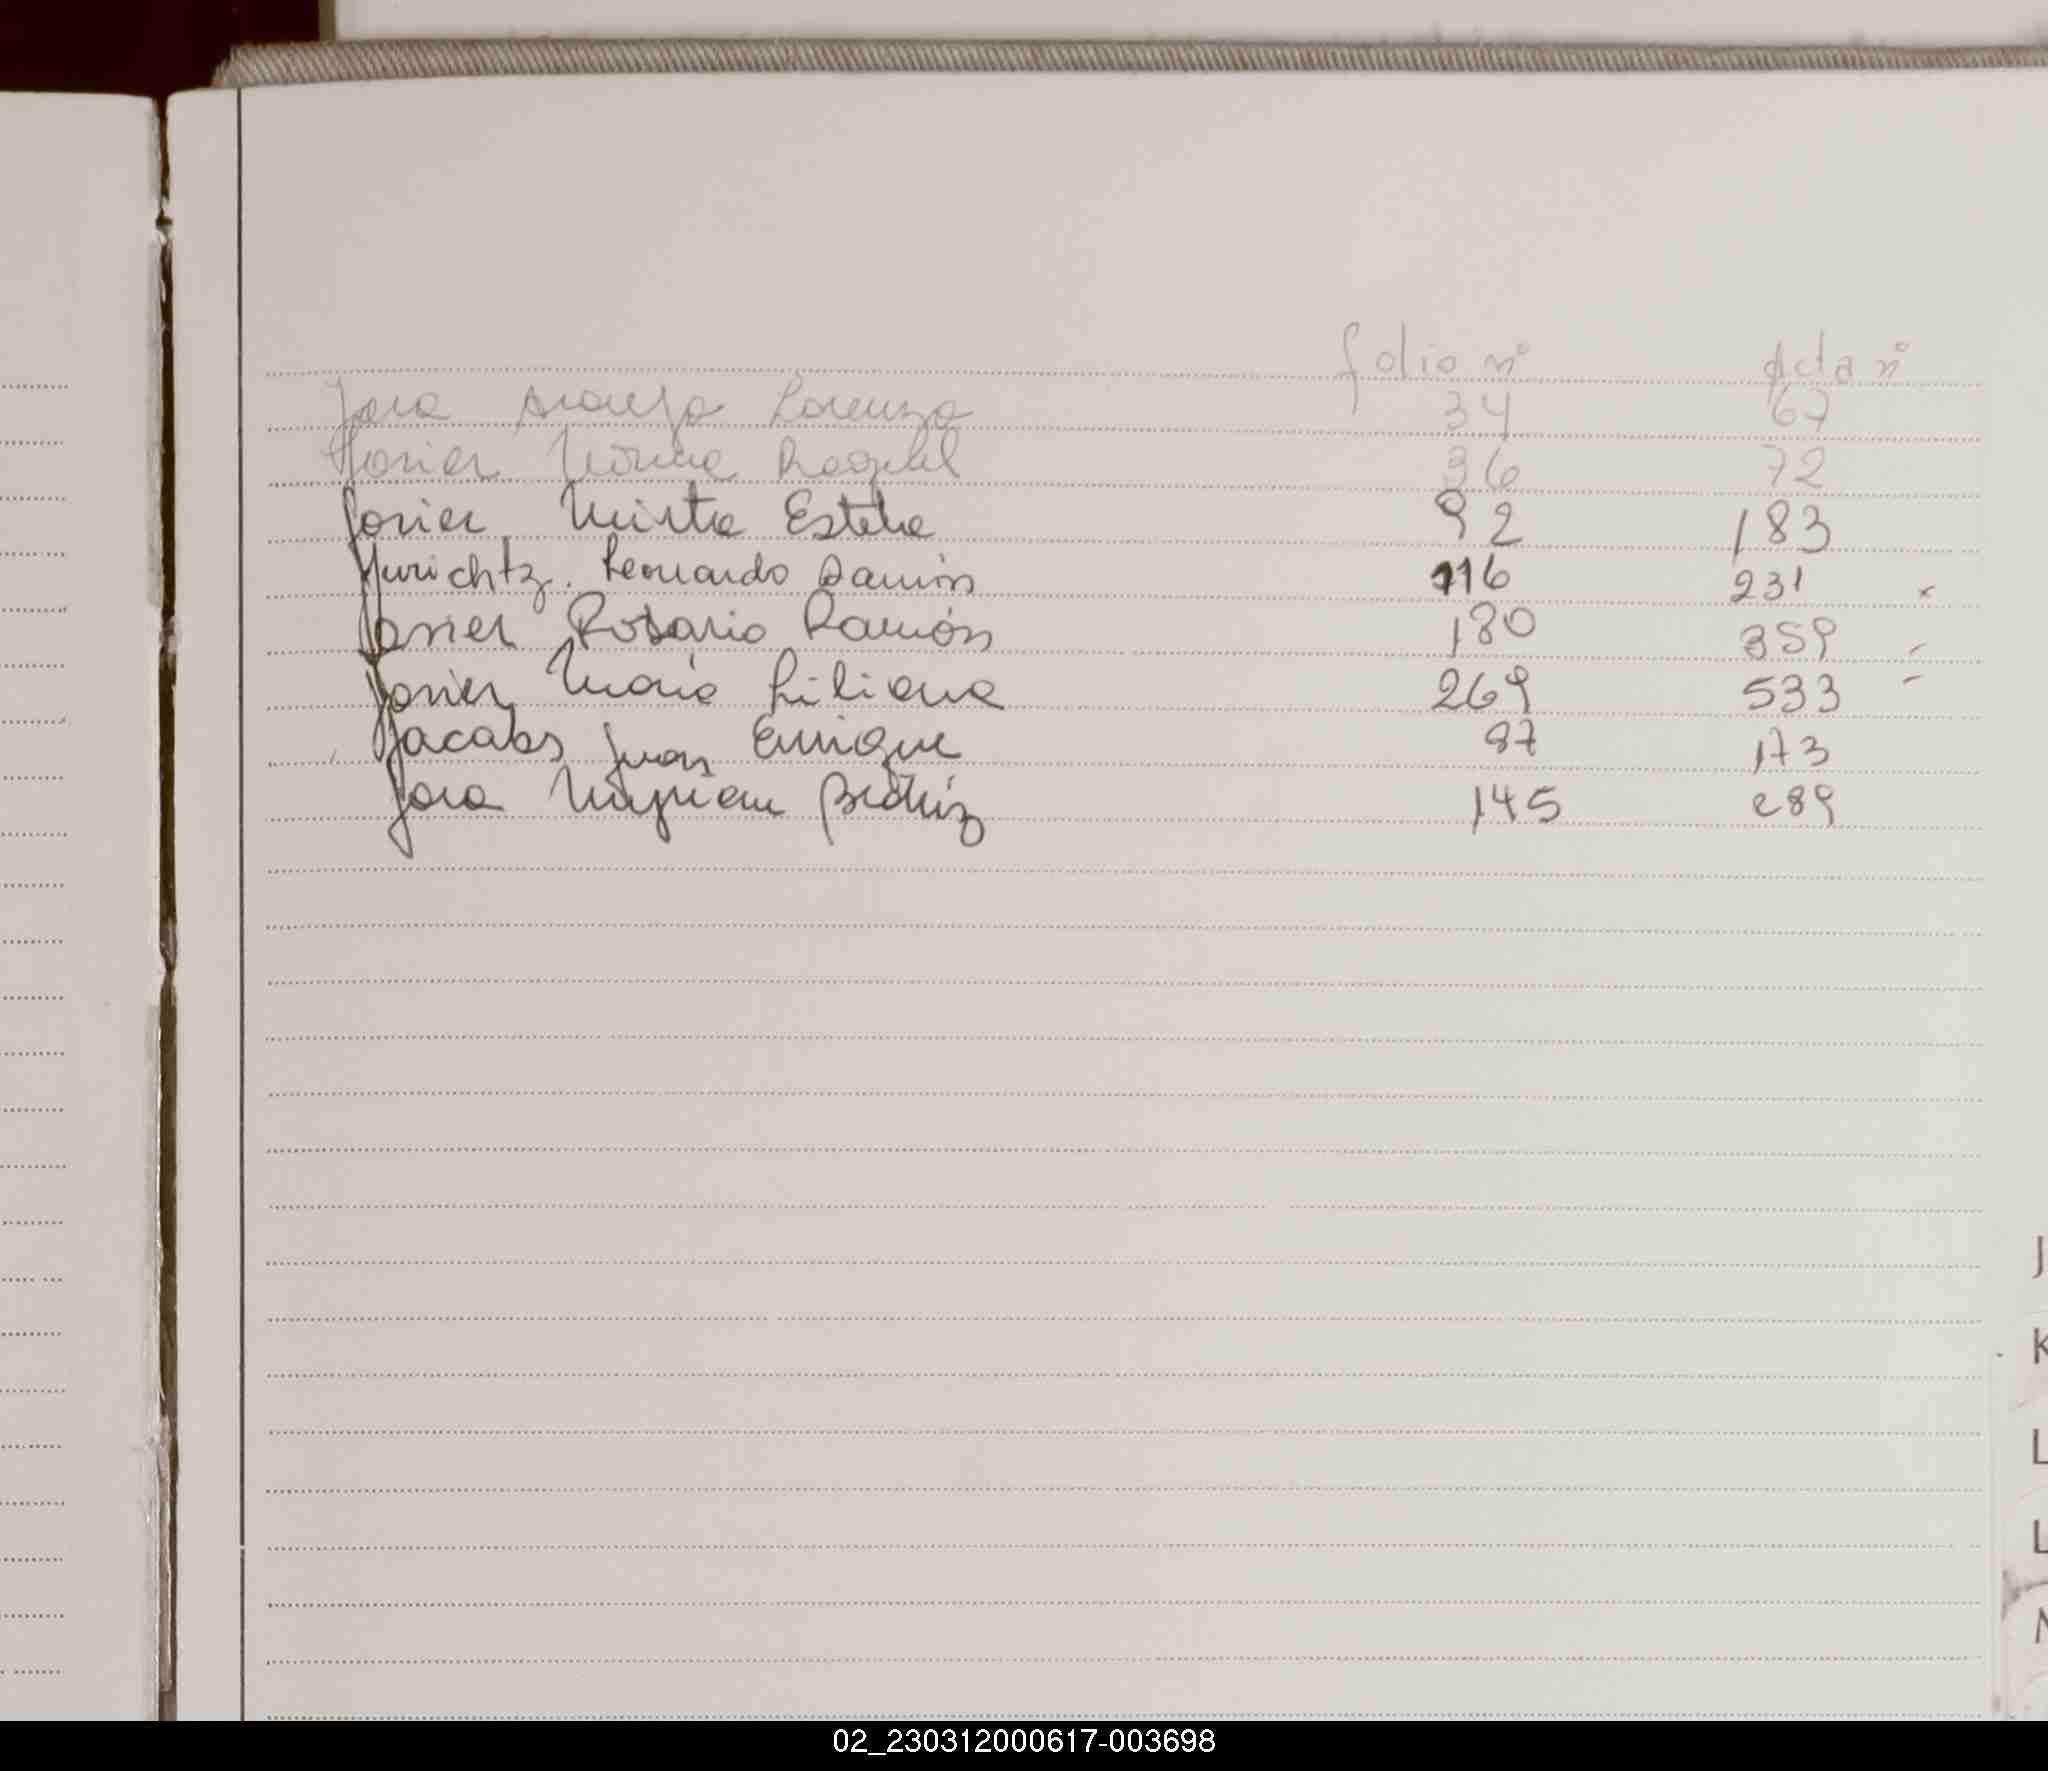 folio nº Acta nº
Jara Araujo Lorenza 34 67
Javier Norma Raquel 36 72
Javier Mirta Estela 92 183
Jurichtz. Leonardo Damián 116 231 x
Javier Rosario Ramón 180 359 -
Javier María Liliana 269 533 -
Jacobs Juan Enrique 87 173
Jara Myriam Beatriz 145 289
J
K
L
L
02_230312000617-003698